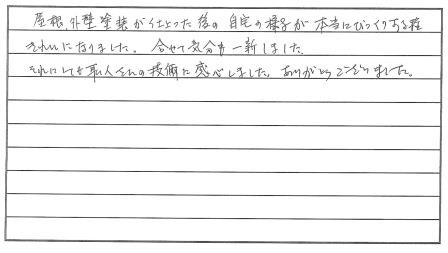 屋根、外壁塗装が仕上った後の自宅の様子が本当にびっくりする程
きれいになりました。合せて気分も一新しました。
それにしても職人さんの技術に感心しました。ありがとうございました。